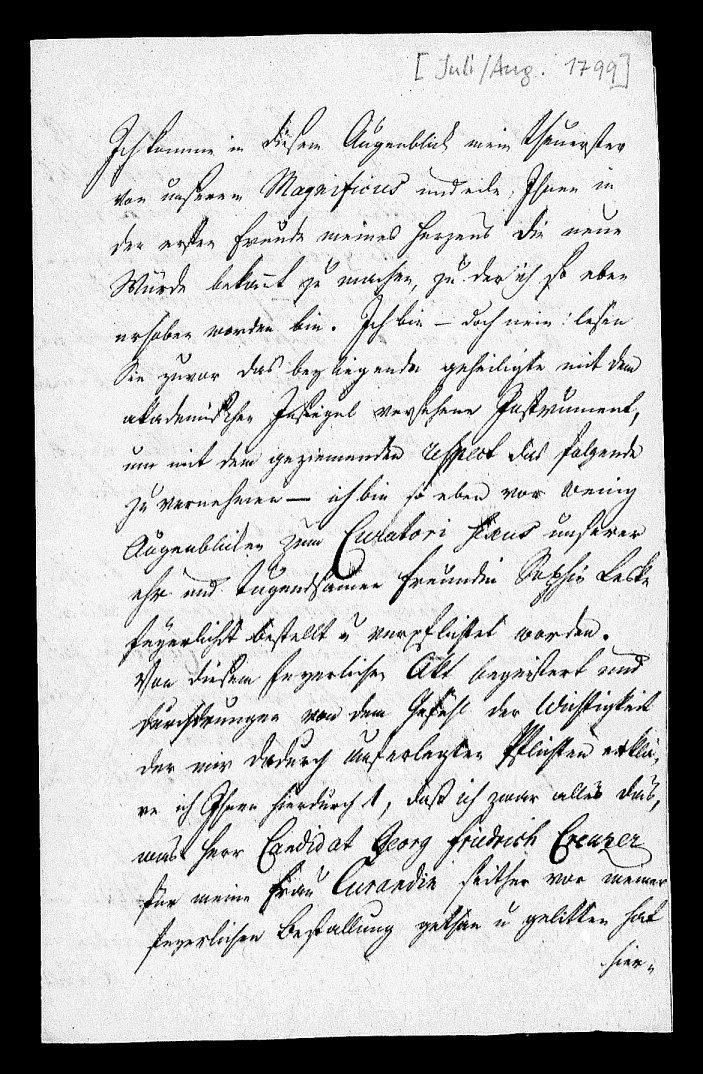 [Juli/Aug. 1799]
Ich komme in diesem Augenblick mein Theuerster
von unserem Magnificus und eile, Ihnen in
der ersten Freude meines Herzens die neue
Würde bekannt zu machen, zu der ich so eben
erhoben worden bin. Ich bin — doch nein! lesen
Sie zuvor das beyliegende geheiligte mit dem
akademischen Insiegel versehene Instrument,
um mit dem geziemenden respect das folgende
zu vernehmen — ich bin so eben vor wenig
Augenblicken zum Curatori unserer
ehr und tugendsamen Freundin Sophie Leske
feyerlichst bestellt u verpflichtet worden.
Von diesem feyerlichen Akt begeistert und
durchdrungen von dem Gefühl der Wichtigkeit
der mir dadurch auferlegten Pflichten erklä-
re ich Ihnen hierdurch, daß ich zwar alles das,
was Herr Candidat Georg Friedrich Creuzer
für meine Frau Curandin seither vor meiner
feyerlichen Bestallung gethan u gelitten hat
hier-